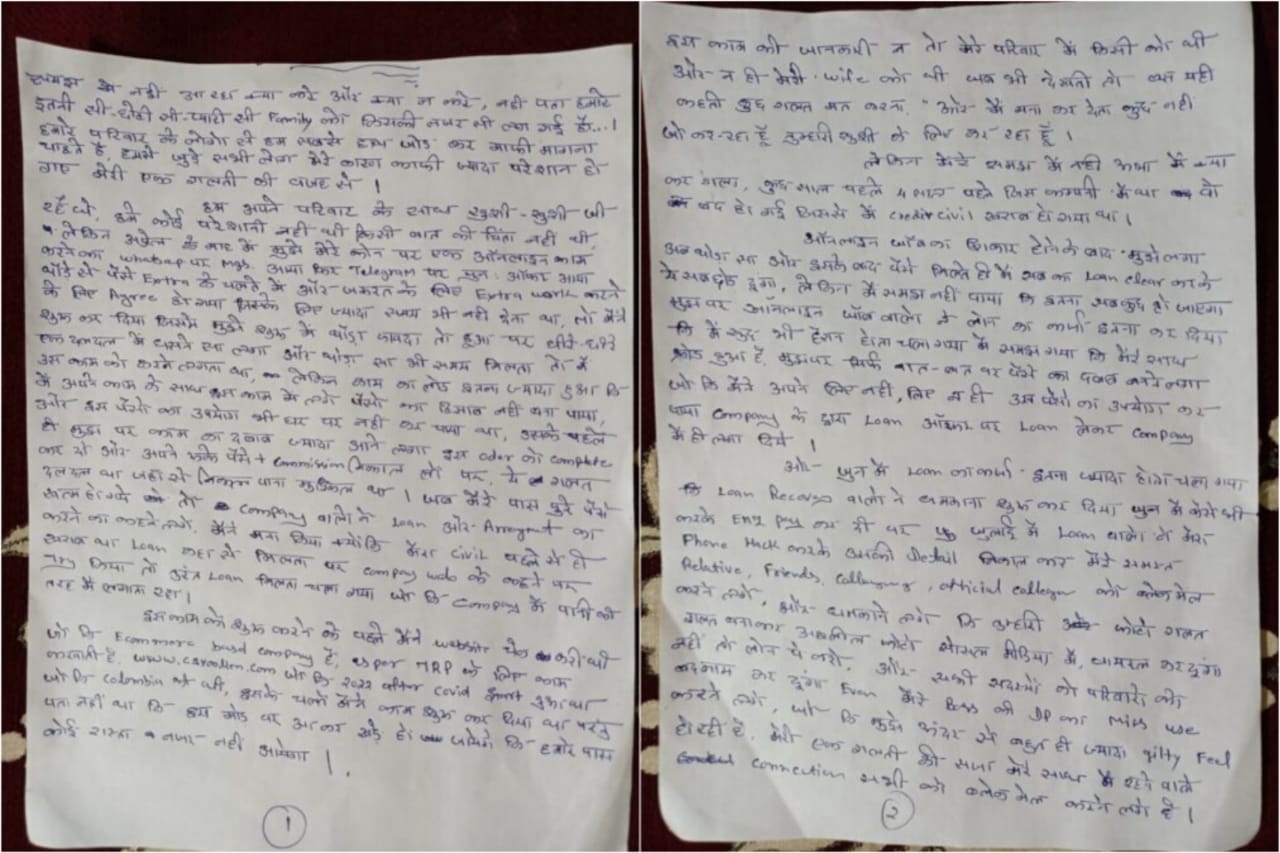 समझ में नहीं आ रहा क्या करे और क्या न करे, नहीं पता हमारे
इतनी सी-छोटी सी-प्यारी सी Family को किसकी नजर सी लग गई है...।
हमारे परिवार के लोगो से हम सबसे हाथ जोड़ कर माफी मांगना
चाहते है, हमसे जुड़े सभी लोग मेरे कारण काफी ज्यादा परेशान हो
गए मेरी एक गलती की वजह से।
हम अपने परिवार के साथ खुशी-खुशी जी
रहे थे, हमे कोई परेशानी नहीं थी किसी बात की चिंता नहीं थी,
लेकिन अप्रेल के बाद में मुझे मेरे फोन पर एक ऑनलाइन काम
करने का whatsap पर Msg. आया फिर Telegram पर पुनः ऑफर आया
थोड़े से पैसे Extra के चलते में और जरूरत के लिए Extra work करने
के लिए Agree हो गया जिसके लिए ज्यादा समय भी नहीं देना था, तो मैंने
शुरू कर दिया जिसमें मुझे शुरू में थोड़ा फायदा तो हुआ पर धीरे-धीरे
एक दलदल में धसने सा लगा और थोड़ा सा भी समय मिलता तो में
उस काम को करने लगता था, लेकिन काम का लोड इतना ज्यादा हुआ कि
में अपने काम के साथ इस काम में लगे पैसों का हिसाब नहीं रख पाया,
और इस पैसों का उपयोग भी घर पर नहीं कर पाया था, उसके पहले
ही मुझ पर काम का दबाव ज्यादा आने लगा इस odor को complete
कर दो और अपने रुके पैसे + Commission निकाल लो पर, ये गलत
दलदल था जहां से निकल पाना मुश्किल था। जब मेरे पास पैसे
खत्म हो गये तो company वालो ने Loan और Arrangment का
करने का कहने लगे, मैंने मना किया क्योंकि मेरा civil पहले से ही
खराब था Loan कहा से मिलता पर company web के कहने पर
Try किया तो तुरंत Loan मिलता चला गया जो कि Company में पानी की
तरह में लगाता रहा।
इस काम को शुरू करने के पहले मैंने website चेक करी थी
जो कि Ecommerc based company है, as per TRP के लिए काम
कराती है, जो कि 2022 after covid start हुआ था
जो कि Colombia की थी, इसके चलते मैंने काम शुरू कर दिया था परंतु
पता नहीं था कि इस मोड़ पर आ कर खड़े हो जायेगे कि हमारे पास
कोई रास्ता नजर नहीं आयेगा।
1
इस काम की जानकारी न तो मेरे परिवार में किसी को थी
और न ही मेरी wife को थी जब भी देखती तो बस यही
कहती कुछ गलत मत करना, "और में मना कर देता कुछ नही
जो कर रहा हूँ तुम्हारी खुशी के लिए कर रहा हूँ।
लेकिन मेरे समझ में नहीं आया में क्या
कर डाला, कुछ साल पहले 4 साल पहले जिस कम्पनी में था वो
बंद हो गई जिससे में credit civil खराब हो गया था।
ऑनलाइन जॉब का शिकार होने के बाद मुझे लगा
अब थोड़ा सा और इसके बाद पैसे मिलते ही में सब का Loan clear करके
ये सब छोड़ दूंगा, लेकिन में समझ नहीं पाया कि इतना सब कुछ हो जाएगा
मुझ पर ऑनलाइन जॉब वालो ने लोन का कर्जा इतना कर दिया
कि में खुद भी हैरान होता चला गया में समझ गया कि मेरे साथ
फ्रोड हुआ है, मुझपर सिर्फ बात-बात पर पैसो का दबाव बनने लगा
जो कि मैंने अपने लिए नहीं लिए न ही उस पैसो का उपयोग कर
पाया Company के द्वारा Loan ऑफर पर Loan लेकर company
में ही लगा दिये।
और जून में Loan का कर्जा इतना ज्यादा होता चला गया
कि Loan Recovery वालो ने धमकाना शुरू कर दिया जून में कैसे भी
करके EMI pay कर दी पर जुलाई में Loan वालो ने मेरा
Phone Hack करके उसकी Detail निकाल कर मेरे समस्त
Relative, Friends, , official को ब्लेकमेल
करने लगे, और धमकाने लगे कि तुम्हारी फोटो गलत
गलत बनाकर अश्लील फोटो सोसल मिडिया में, वायरल कर दूंगा
नहीं तो लोन पे करो, और सभी सदस्यों को परिवारो को
बदनाम कर दूंगा Even मेरे Boss की DP का Miss use
करने लगे, जो कि मुझे अंदर से बहुत ही ज्यादा gilty Feel
हो रही है, मेरी एक गलती की सजा मेरे साथ में रहने वाले
connection सभी को ब्लेकमेल करने लगे है।
2